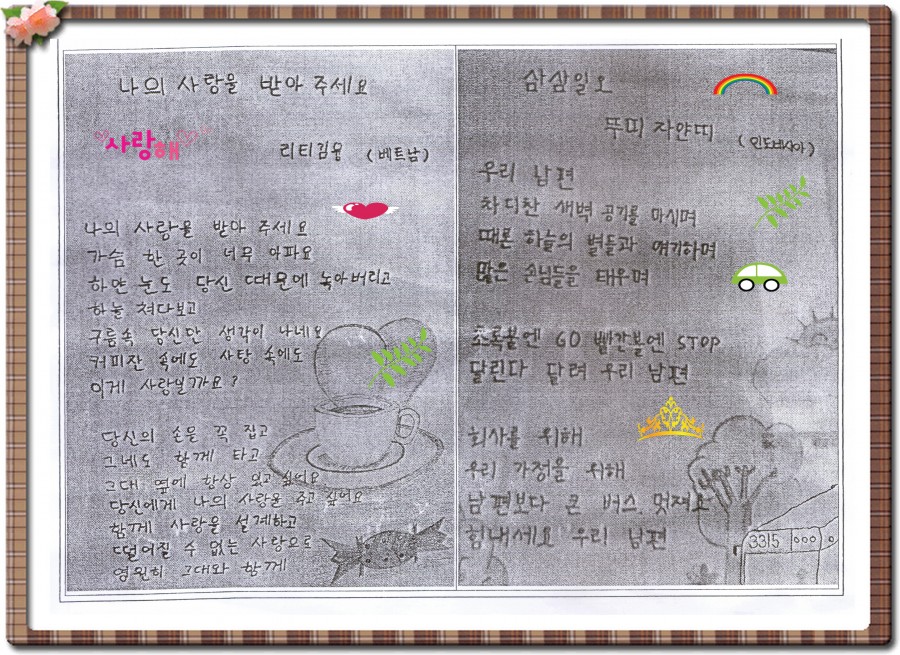 나의 사랑을 받아 주세요
사랑해
리티김용 (베트남)
나의 사랑을 받아 주세요
가슴 한 곳이 너무 아파요
하얀 눈도 당신 때문에 녹아버리고
하늘 쳐다보고
구름속 당신만 생각이 나네요
커피잔 속에도 사탕 속에도
이게 사랑일까요?
당신의 손을 꼭 잡고
그네도 함께 타고
그대 옆에 항상 있고 싶어요
당신에게 나의 사랑을 주고 싶어요
함께 사랑을 설계하고
떨어질 수 없는 사랑으로
영원히 그대와 함께
삼삼일오
뚜띠 자얀띠 (인도네시아)
우리 남편
차디찬 새벽 공기를 마시며
때론 하늘의 별들과 얘기하며
많은 손님들을 태우며
초록불엔 GO 빨간불엔 STOP
달린다 달려 우리 남편
회사를 위해
우리 가정을 위해
남편보다 큰 버스 멋져요
힘내세요 우리 남편
3315